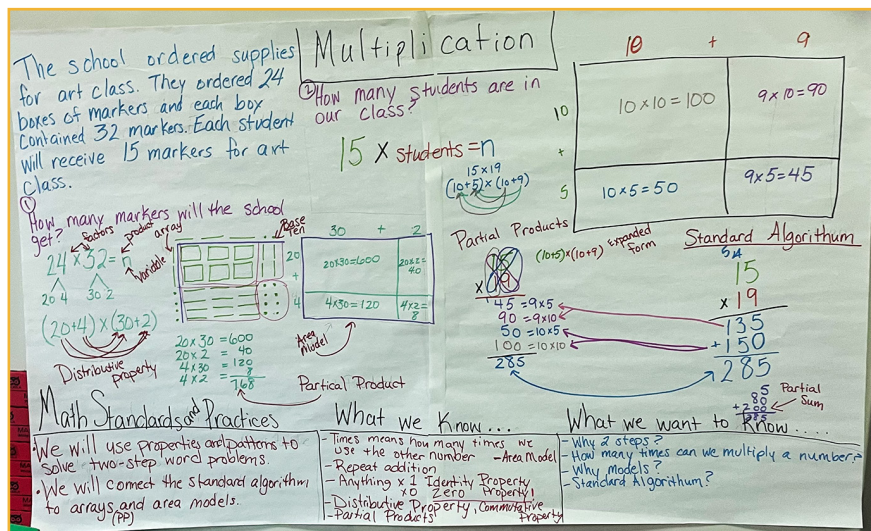 Multiplication
The school ordered supplies
for art class. They ordered 24
boxes of markers and each box
contained 32 markers. Each student
will receive 15 markers for art
class.
①
How many markers will the school
get?
factors
product
array
Base
Ten
24 × 32 = n
variable
20 4 30 2
(20+4) × (30+2)
Distributive
property
30 + 2
20
+
4
20×30=600
20×2=
40
4×30=120
4×2=
8
Area
Model
20 × 30 = 600
20 × 2 = 40
4 × 30 = 120
4 × 2 = 8
768
Partical Product
② How many students are in
our class?
15 × students = n
15 × 19
(10+5) × (10+9)
10 + 9
10
+
5
10 × 10 = 100
9 × 10 = 90
10 × 5 = 50
9 × 5 = 45
Partial Products
(10+5)×(10+9) Expanded
form
45 = 9×5
90 = 9×10
50 = 10×5
100 = 10×10
285
Standard Algorithum
15
× 19
135
+150
285
5
80
+200
285
Partial
Sum
Math Standards and Practices
• We will use properties and patterns to
solve two-step word problems.
• We will connect the standard algorithm
to arrays and area models.
(PP)
What we Know...
- Times means how many times we
use the other number - Area Model
- Repeat addition
- Anything × 1 Identity Property
×0 Zero Property!
- Distributive Property, Commutative
Property
- Partial Products
What we want to Know....
- Why 2 steps?
- How many times can we multiply a number?
- Why models?
- Standard Algorithum?